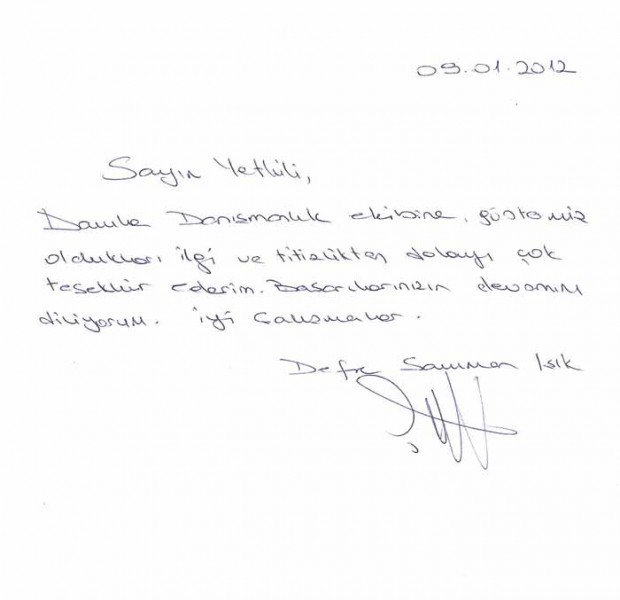 09.01.2012
Sayın Yetkili,
Damla Danışmanlık ekibine, göstermiş
oldukları ilgi ve titizlikten dolayı çok
teşekkür ederim. Başarılarınızın devamını
diliyorum. İyi Çalışmalar.
Defne Işık